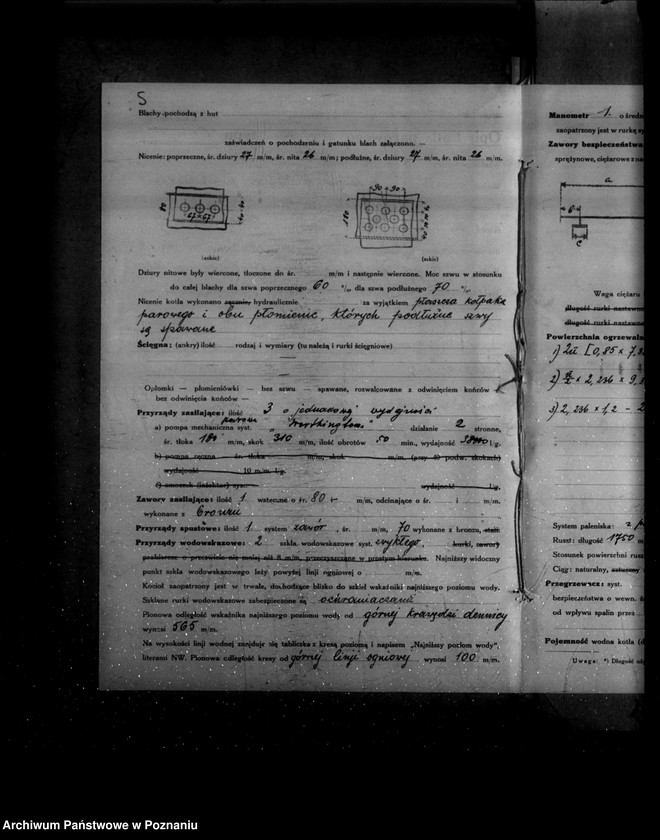 5
Blachy pochodzą z hut
zaświadczeń o pochodzeniu i gatunku blach załączono. —
Nicenie: poprzeczne, śr. dziury 27 m/m, śr. nita 26 m/m; podłużne, śr. dziury 27 m/m, śr. nita 26 m/m.
90 90
80
67 67
180
(szkic) (szkic)
Dziury nitowe były wiercone, tłoczone do śr. m/m i następnie wiercone. Moc szwu w stosunku
do całej blachy dla szwa poprzecznego 60 % dla szwa podłużnego 70 %
Nicenie kotła wykonano hydraulicznie za wyjątkiem płaszcza kołpaka
parowego i obu płomienic, których podłużne szwy
są spawane
Ścięgna: (ankry) ilość rodzaj i wymiary (tu należą i rurki ścięgniowe)
Opłomki — płomieniówki — bez szwu — spawane, rozwalcowane z odwinięciem końców
bez odwinięcia końców —
Przyrządy zasilające: ilość 3 o jednakowej wydajności
a) pompa mechaniczna syst. parowa "Worthington" działanie 2 stronne,
śr. tłoka 180 m/m, skok 310 m/m, ilość obrotów 50 min., wydajność l/g.
b) pompa ręczna śr. tłoka m/m, skok m/m, (przy 40 podw. skokach)
wydajność 10 m/m. l/g.
c) smoczek (inżektor) syst. wydajność l/g.
Zawory zasilające: ilość 1 wsteczne o śr. 80 m/m, odcinające o śr. m/m,
wykonane z bronzu
Przyrządy spustowe: ilość 1 system zawór, śr. m/m, 70 wykonane z bronzu, stali
Przyrządy wodowskazowe: 2 szkła wodowskazowe syst. zwykłego, kurki, zawory
probiercze o przecivcie nie mniej niż 8 m/m, przeczyszczane w prostym kierunku. Najniższy widoczny
punkt szkła wodowskazowego leży powyżej linji ogniowej o m/m.
Kocioł zaopatrzony jest w trwale, dochodzące blisko do szkieł wskaźniki najniższego poziomu wody.
Szklane rurki wodowskazowe zabezpieczone są ochraniaczami
Pionowa odległość wskaźnika najniższego poziomu wody, od górnej krawędzi dennicy
wynosi 565 m/m.
Na wysokości linji wodnej znajduje się tabliczka z kresą poziomą i napisem „Najniższy poziom wody",
literami NW. Pionowa odległość kresy od górnej linji ogniowej wynosi 100 m/m.
Manometr 1. o średn
zaopatrzony jest w rurkę sy
Zawory bezpieczeństwa
sprężynowe, ciężarowe z na
a
b
c
Waga ciężaru
długość nastawne
długość nastawne
Powierzchnia ogrzewaln
[0,85 × 7,8
× 2,236 × 9,8
3) 2,236 × 1,2 - 2
System paleniska:
Ruszt: długość 1750 m
Stosunek powierzchni rusz
Ciąg: naturalny, sztuczny
Przegrzewcz: syst.
bezpieczeństwa o wewn. ś
od wpływu spalin przez
Pojemność wodna kotła (d
Uwaga: *) Długość od
Archiwum Państwowe w Poznaniu